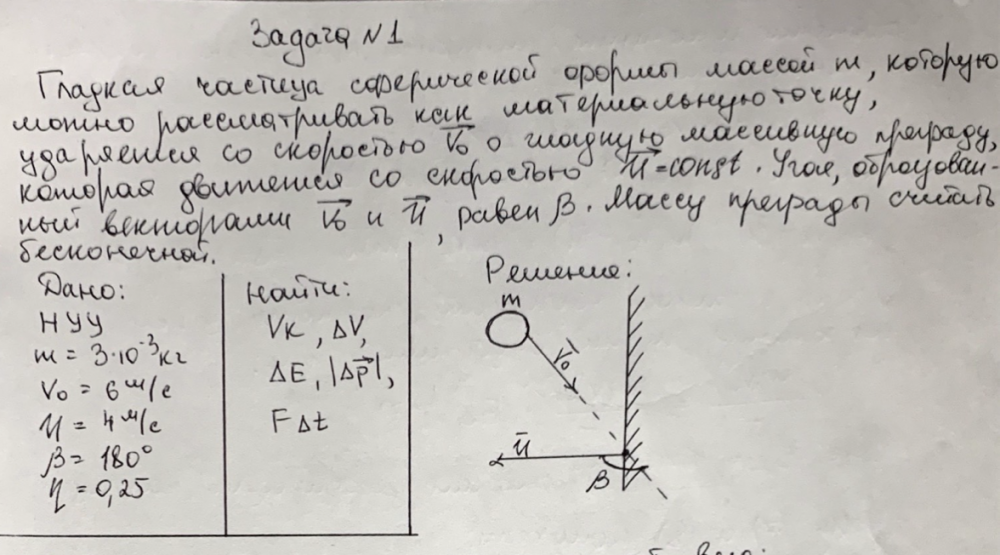 Задача №1
Гладкая частица сферической формы массой m, которую
можно рассматривать как материальную точку,
ударяется со скоростью V₀ о гладкую массивную преграду,
которая движется со скоростью U=const. Угол, образован-
ный векторами V₀ и U, равен β. Массу преграды считать
бесконечной.
Дано:
НУУ
m = 3·10⁻³кг
V₀ = 6 м/с
U = 4 м/с
β = 180°
η = 0,25
Найти:
Vк, ΔV,
ΔE, |Δp|,
FΔt
Решение:
m
V₀
U
β